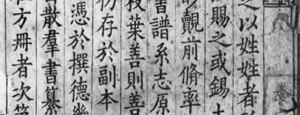 之以姓姓者
賜之或錫土
前脩率
譜系志原
枝葉善則善
仍存於副本
憑於撰德幾
散羣書纂
方冊者次第